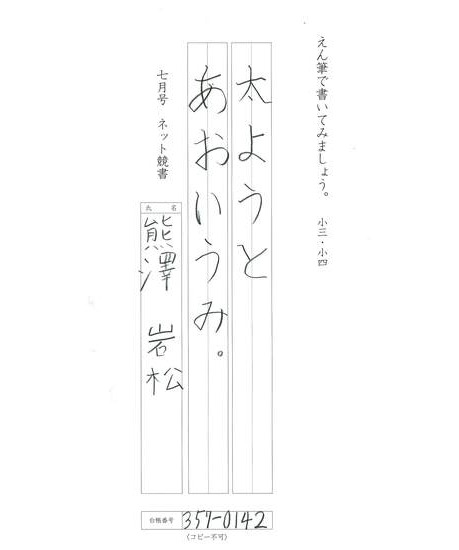 えん筆で書いてみましょう。 小三・小四
太ようと
あおいうみ。
七月号 ネット競書
氏名
熊澤 岩松
台帳番号 357-0142
(コピー不可)